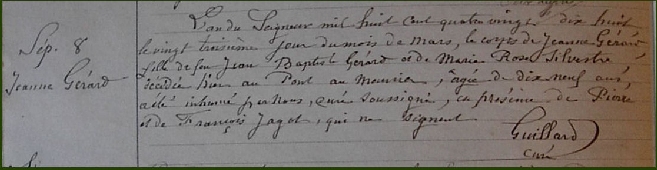 L'an du Seigneur mil huit cent quatre vingt dix huit
Sép. 8
le vingt troisième jour du mois de mars, le corps de Jeanne Gérard,
Jeanne Gérard
fille de feu Jean Baptiste Gérard et de Marie Rose Silvestre
décédée hier au Pont au Meunier, âgée de dix neuf ans,
a été inhumé par Nous, curé soussigné, en présence de Pierre
et de François Jagot, qui ne signent
Guillard
curé